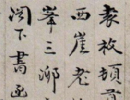 襄枚頓首
西崖老
峯三鄉
閣下書函